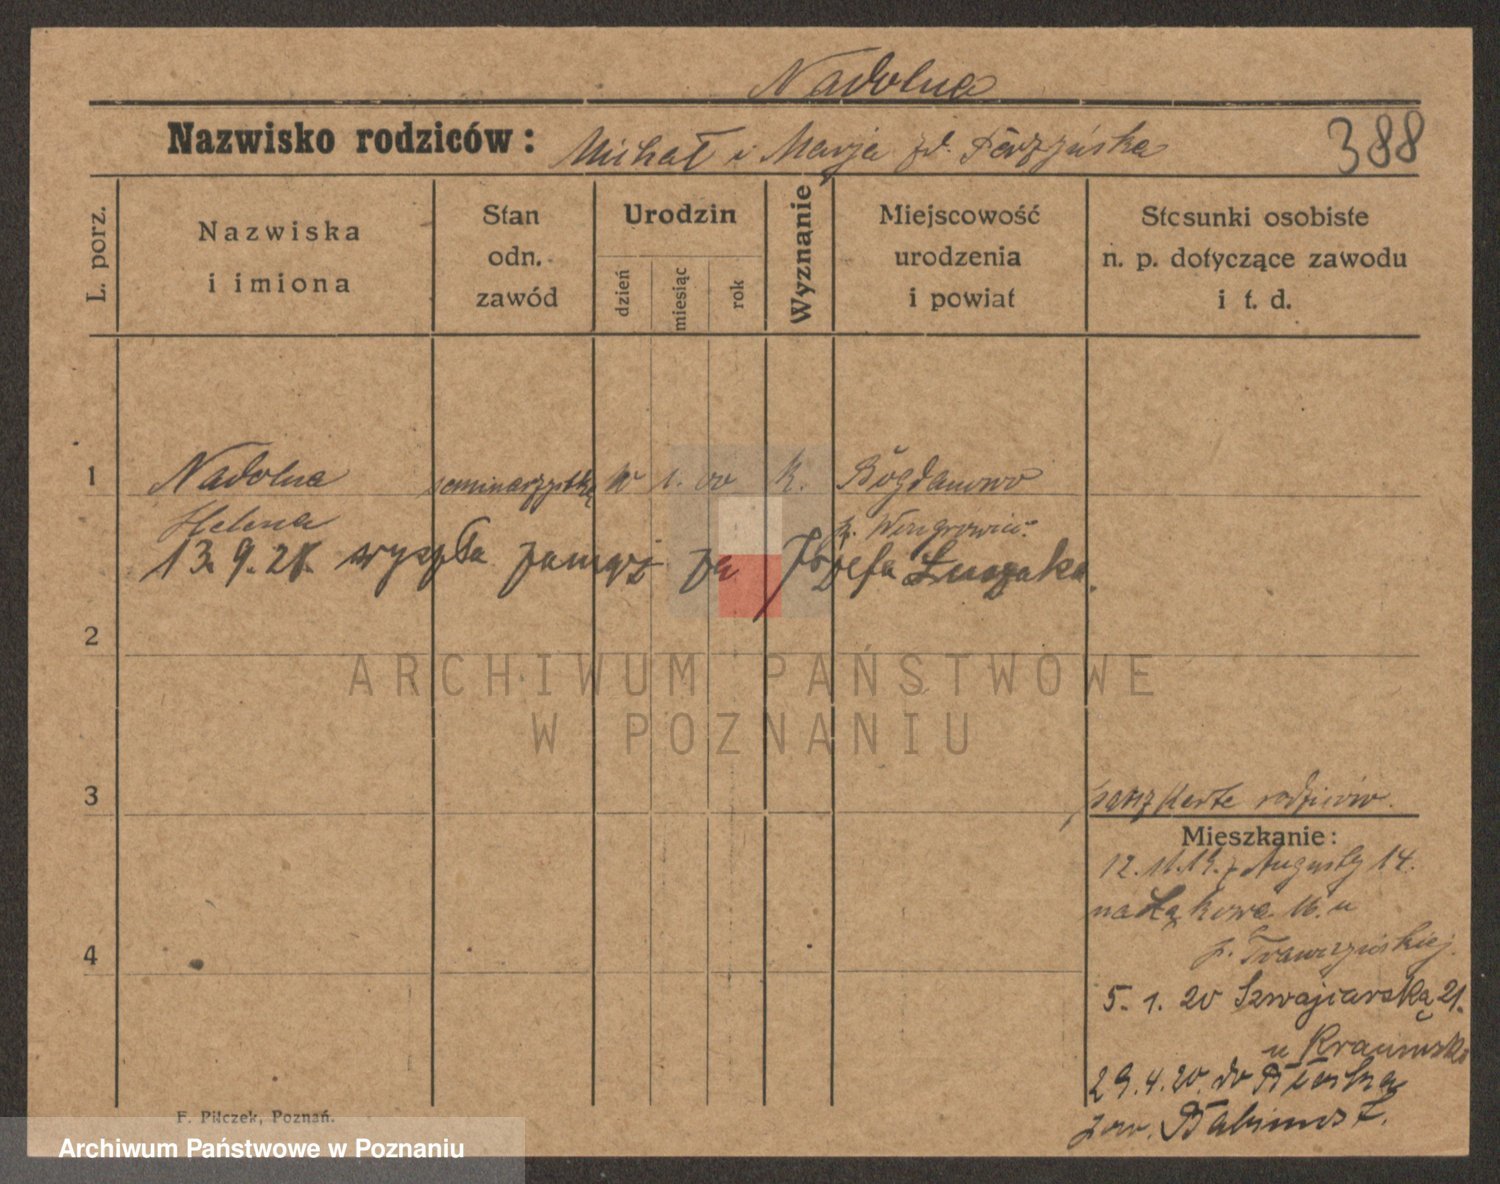 Nadolna
Nazwisko rodziców: Michał i Marja zd.
388
L. porz.
Nazwiska
i imiona
Stan
odn.
zawód
Urodzin
dzień
miesiąc
rok
Wyznanie
Miejscowość
urodzenia
i powiat
Stosunki osobiste
n. p. dotyczące zawodu
i t. d.
1
Nadolna seminarzystka 1. 00 k. Bogdanowo
Helena p.
13.9.21. wyszła zamąż za Józefa Łuczaka.
2
ARCHIWUM PAŃSTWOWE
W POZNANIU
3
karte rodziców.
Mieszkanie:
12.11.19. z Augusty 14.
na Łąkową 16. u
p.
4
5. 1. 20 Szwajcarską 21.
u
29.4.20. do
pow. Babimost.
F. Pilczek, Poznań.
Archiwum Państwowe w Poznaniu